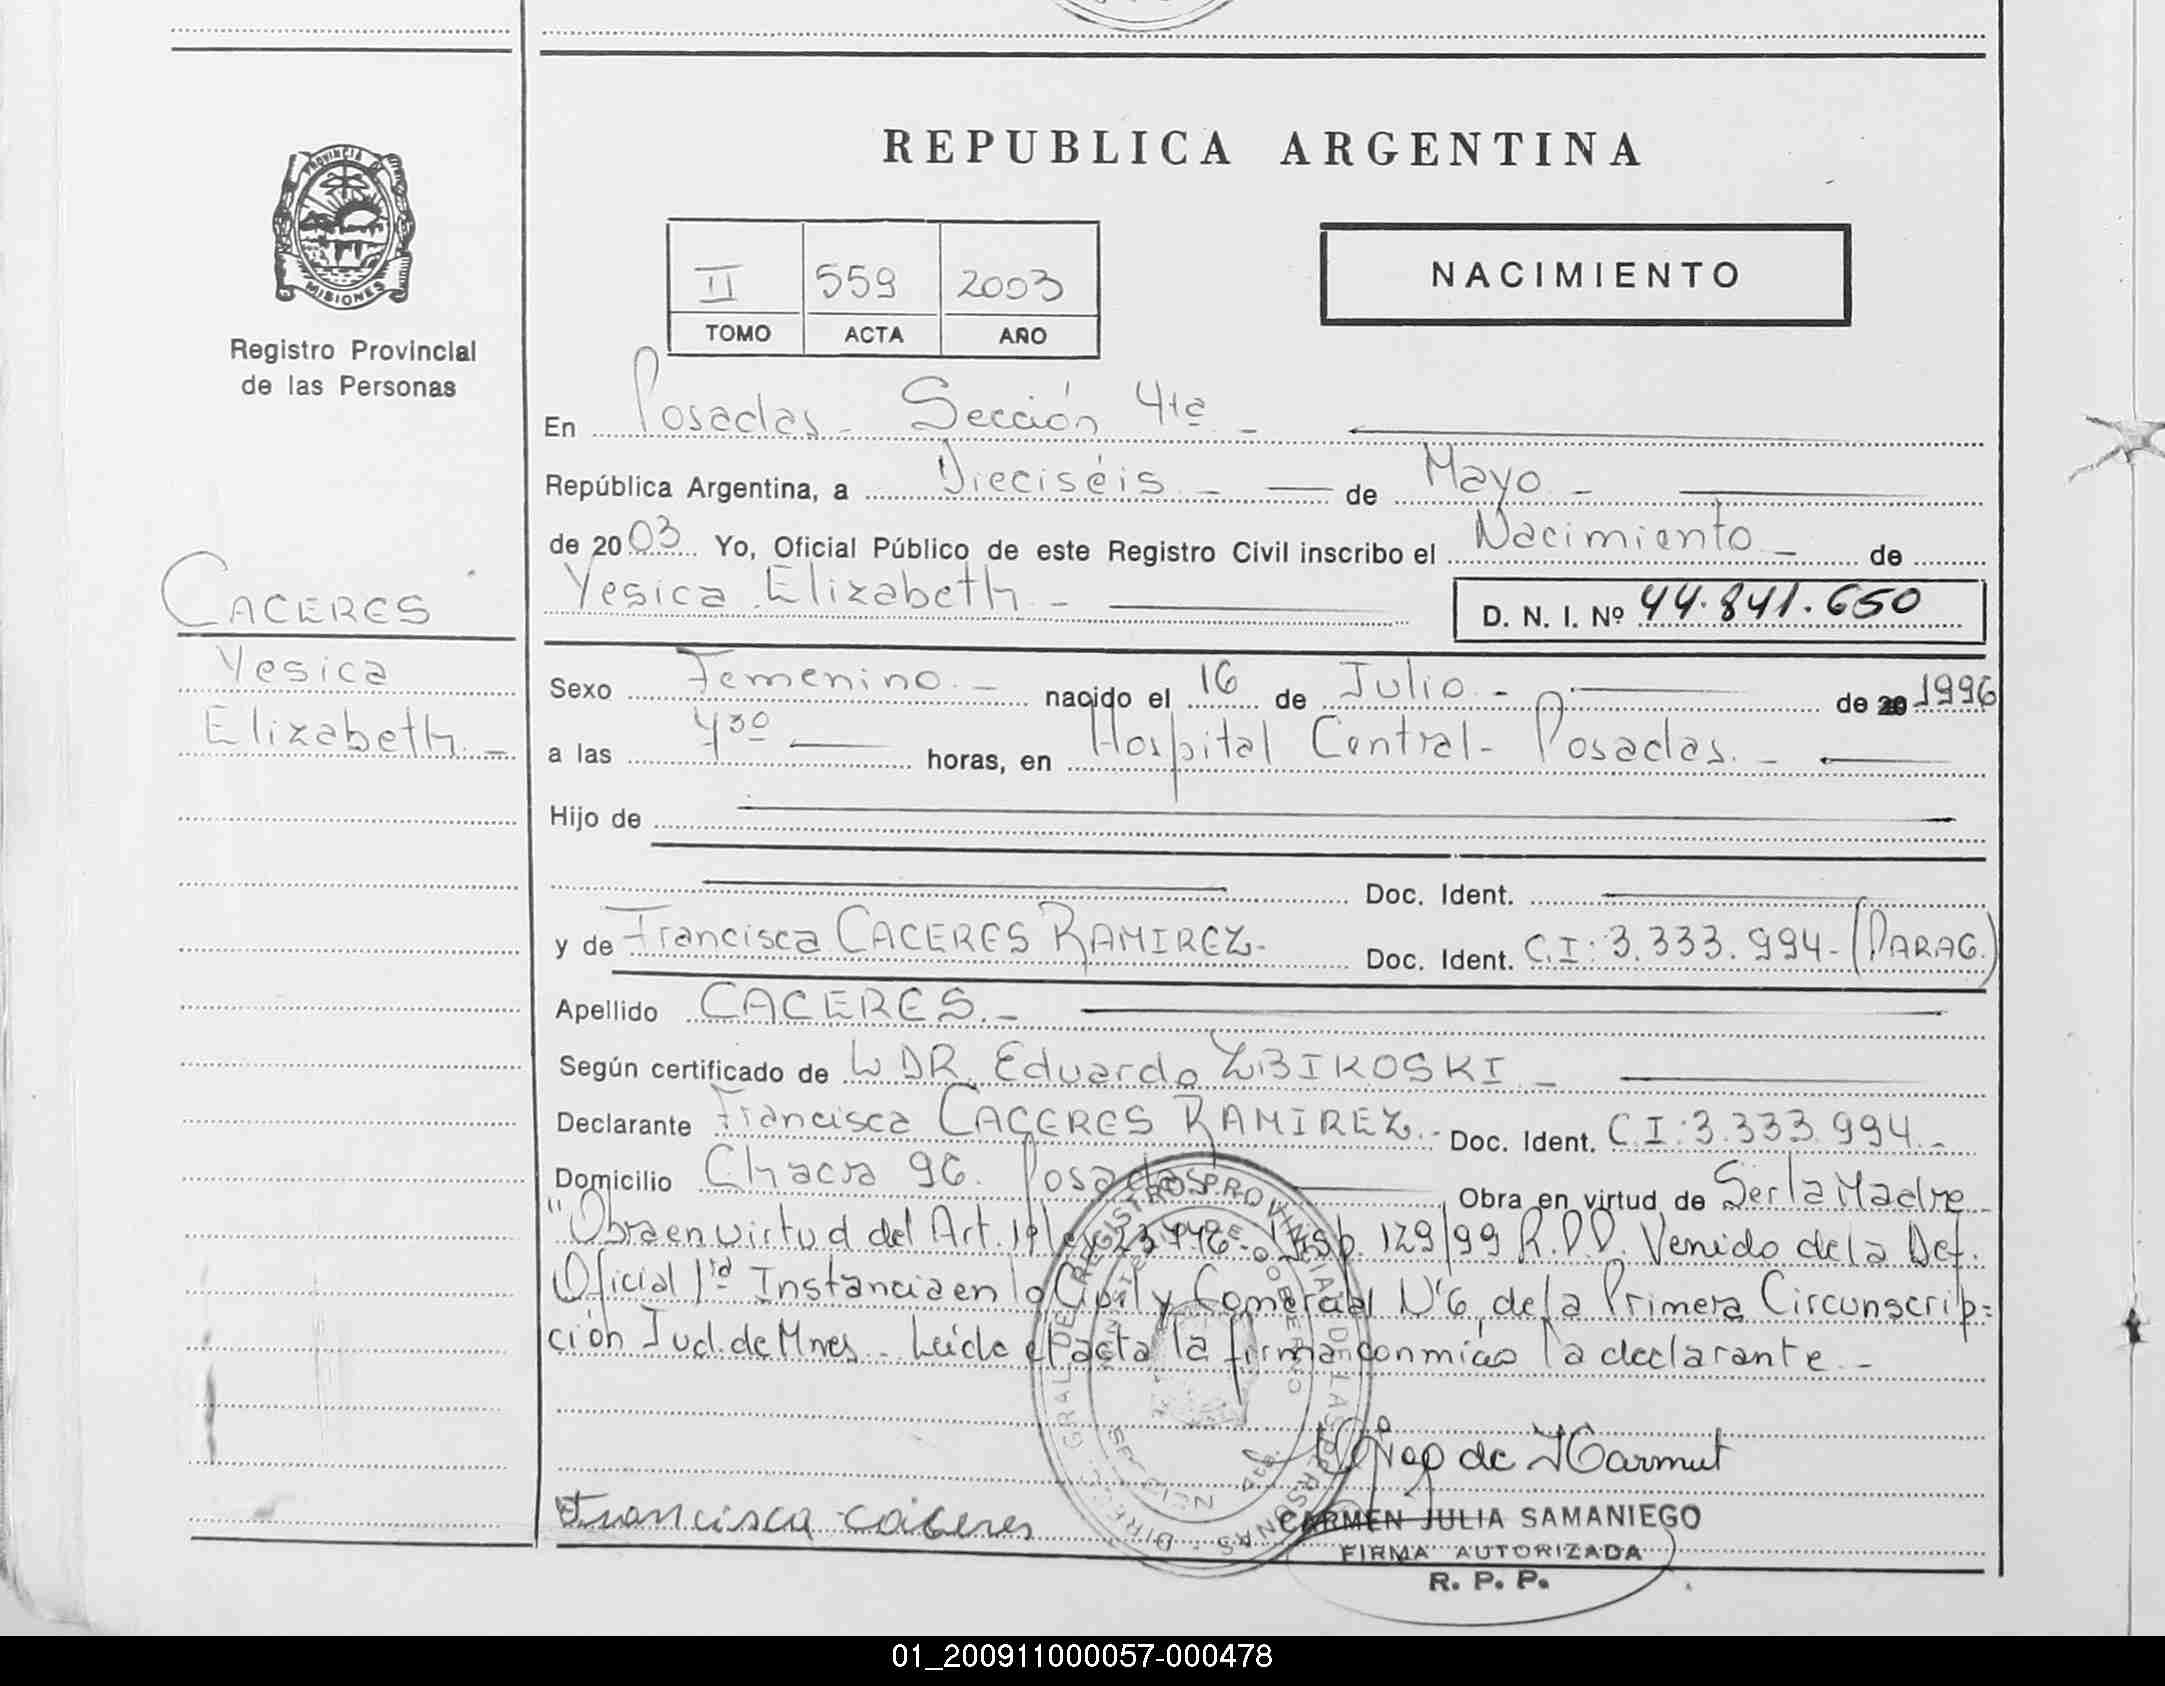 REPUBLICA ARGENTINA
PROVINCIA DE MISIONES
Registro Provincial
de las Personas
II 559 2003
TOMO ACTA AÑO
NACIMIENTO
En Posadas - Sección 4ta -
República Argentina, a Dieciséis - de Mayo -
de 2003 Yo, Oficial Público de este Registro Civil inscribo el Nacimiento - de
Yesica Elizabeth - D. N. I. Nº 44.841.650
CACERES
Yesica
Elizabeth -
Sexo Femenino - nacido el 16 de Julio - de 20 1996
a las 4 30 horas, en Hospital Central - Posadas. -
Hijo de
Doc. Ident.
y de Francisca CACERES RAMIREZ - Doc. Ident. C.I: 3.333.994 - (PARAG.)
Apellido CACERES. -
Según certificado de DR. Eduardo ZBIKOSKI -
Declarante Francisca CACERES RAMIREZ. - Doc. Ident. C.I: 3.333.994. -
Domicilio Chacra 96. Posadas Obra en virtud de Ser la Madre
"Obra en virtud del Art. 1º Ley 23.776 - 129/99 R.P.P. Venido de la Def.
Oficial 1ra Instancia en lo Civil y Comercial Nº 6, de la Primera Circunscrip=
ción Jud. de Mnes. Leída el acta la firman conmigo la declarante. -
Francisca caceres
CARMEN JULIA SAMANIEGO
FIRMA AUTORIZADA
R. P. P.
01_200911000057-000478